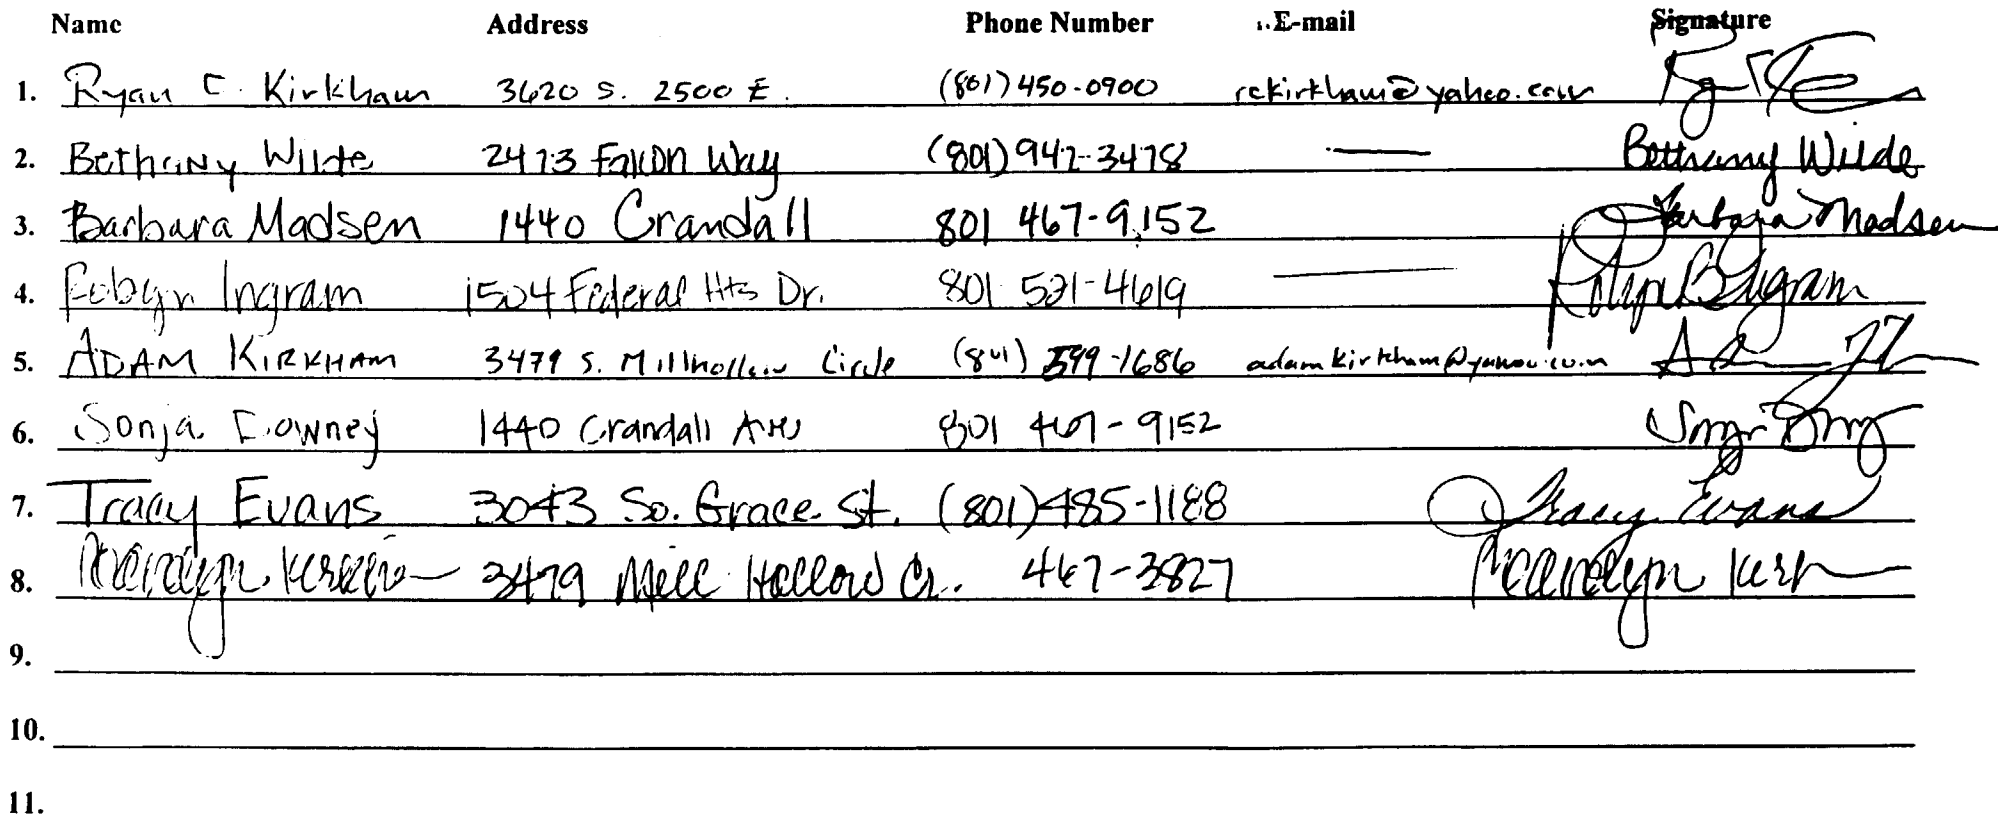 Name Address Phone Number E-mail Signature
1. Ryan C. Kirkham 3620 S. 2500 E. (801) 450-0900 rckirkham@yahoo.com
2. Bethany Wilde 2473 Falcon Way (801) 942-3478 — Bethany Wilde
3. Barbara Madsen 1440 Crandall 801 467-9152 Barbara Madsen
4. Robyn Ingram 1504 Federal Hts Dr. 801 521-4619 — Robyn B Ingram
5. ADAM KIRKHAM 3479 S. Millhollow Circle (801) 599-1686 adamkirkham@yahoo.com
6. Sonja Downey 1440 Crandall Ave 801 467-9152
7. Tracy Evans 3043 So. Grace St. (801) 485-1188 Tracy Evans
8. 3479 Mill Hollow Cr. 467-3827
9.
10.
11.